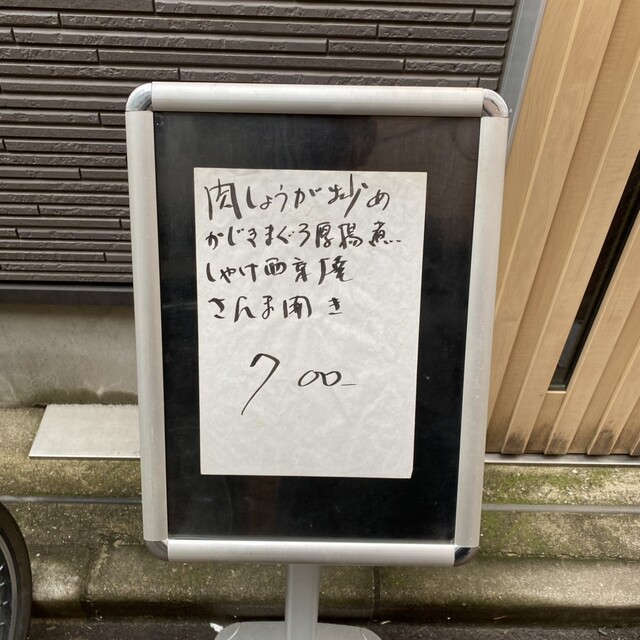 肉しょうが炒め
かじきまぐろ厚揚煮
しゃけ西京焼
さんま開き
700-